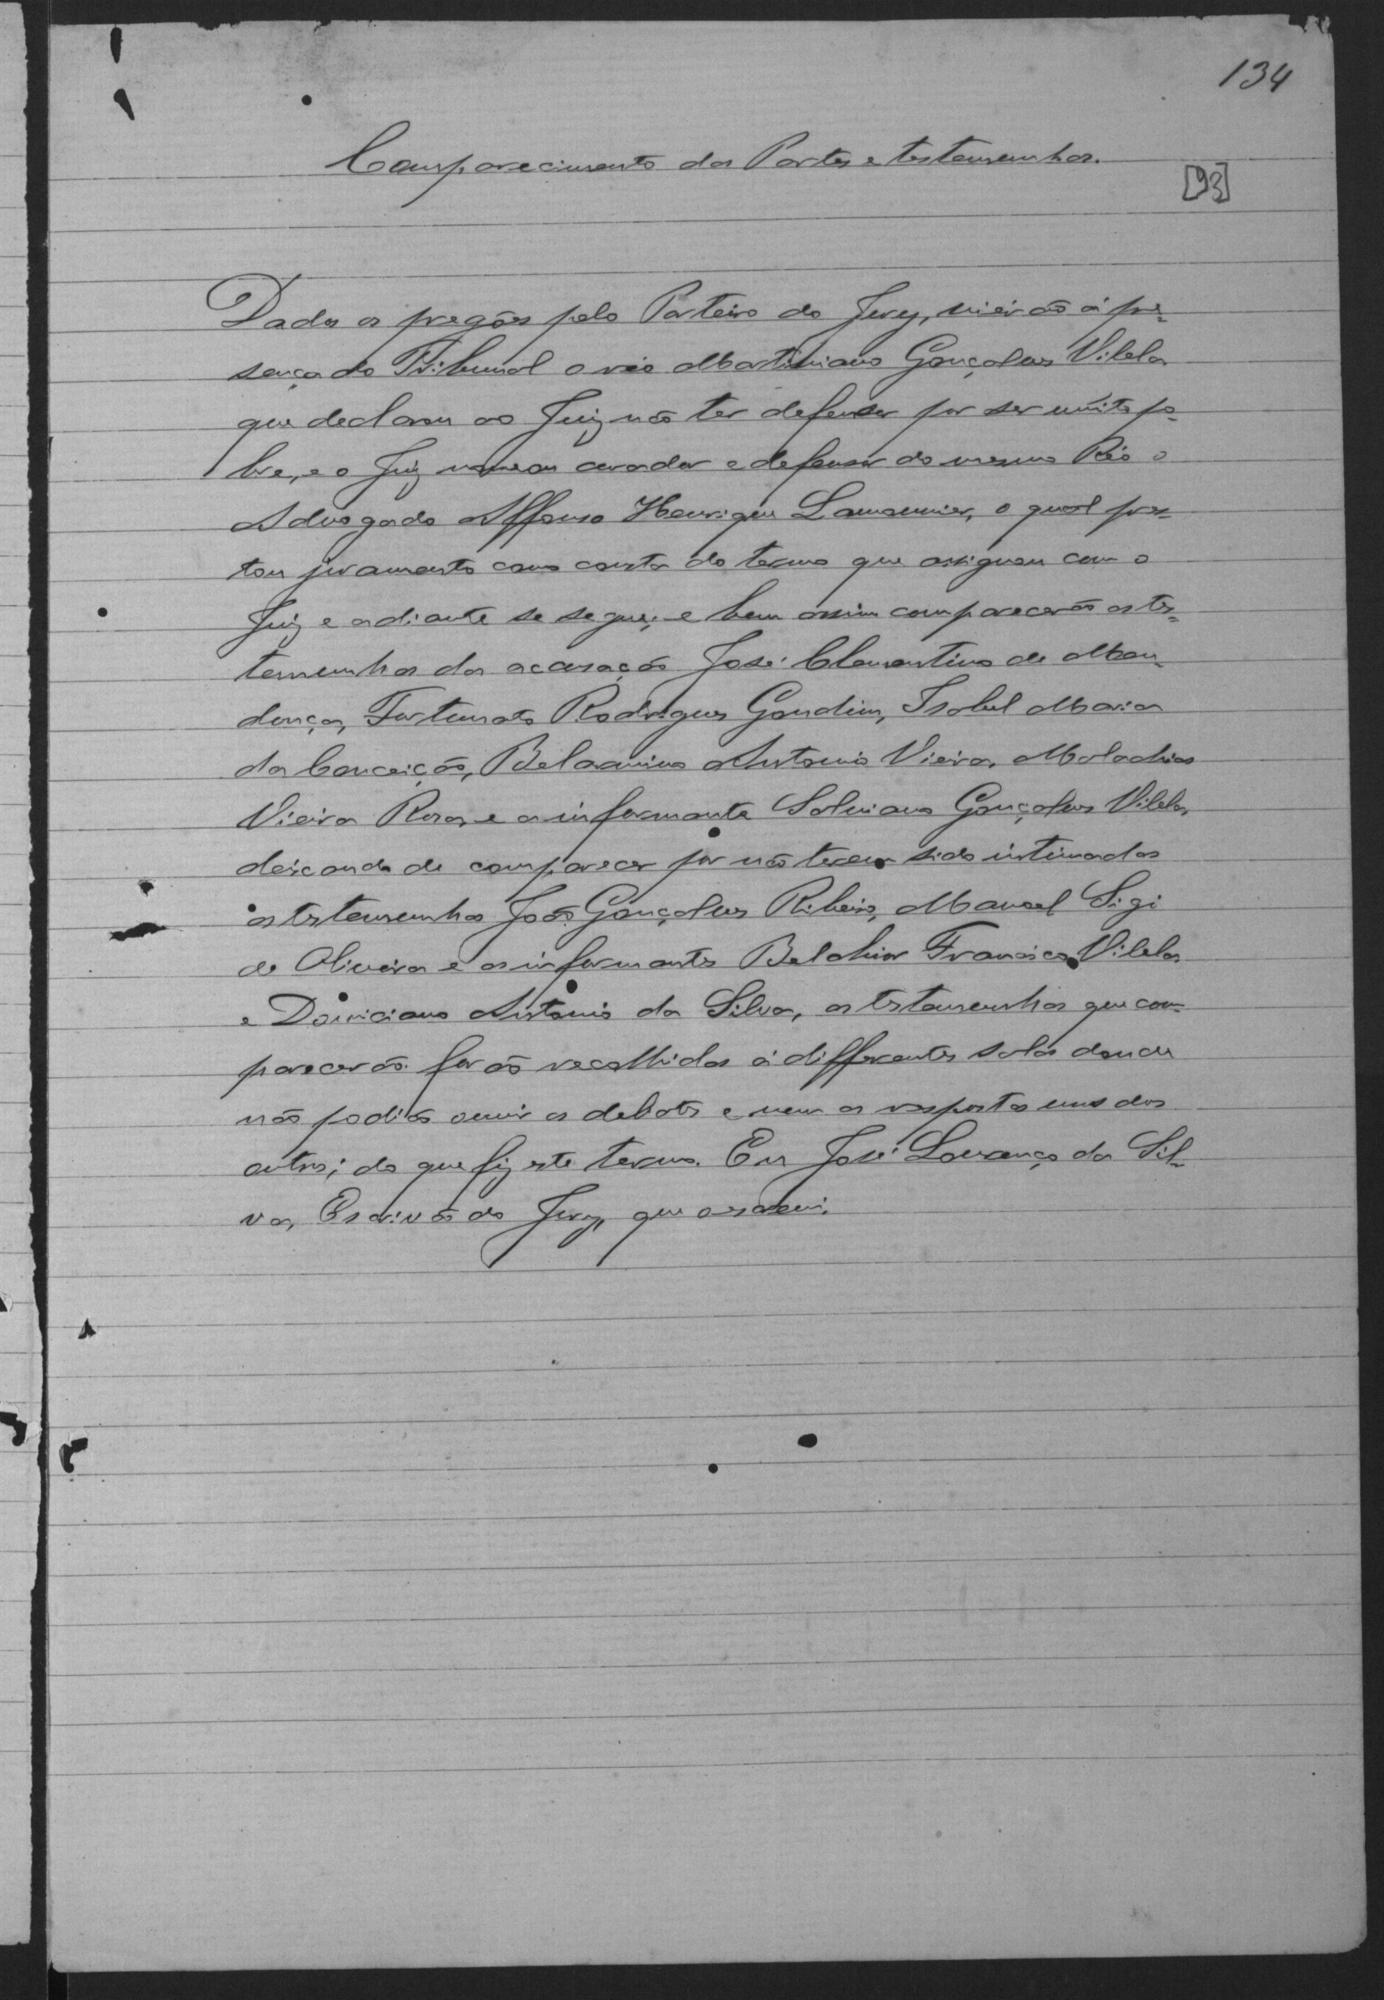 134
Comparecimento das Partes e testemunhas.
[93]
Dados os pregões pelo Porteiro do Jury, vierão á pre-
sença do Tribunal o réo Martiniano Gonçalves Vilela
que declarou ao Juiz não ter defensor por ser muito po-
bre, e o Juiz nomeou curador e defensor do mesmo Réo o
Advogado Affonso Henrique Lamounier, o qual pres-
tou juramento como consta do termo que assignou com o
Juiz e adiante se segue; e bem assim comparecerão as tes-
temunhas da accusação José Clementino de Men-
donça, Fortunato Rodrigues Gondim, Isabel Maria
da Conceição, Belarmino Antonio Vieira, Malachias
Vieira Rosa, e a informante Salviana Gonçalves Vilela,
deixando de comparecer por não terem sido intimados
as testemunhas João Gonçalves Ribeiro, Manoel
de Oliveira e os informantes Belchior Francisco Vilela
e Domiciano Antonio da Silva, as testemunhas que com-
parecerão forão recolhidas á differentes salas donde
não podião ouvir os debates e nem as respostas umas das
outras; do que fiz este termo. Eu José Lourenço da Sil-
va, Escrivão do Jury, que o escrevi.